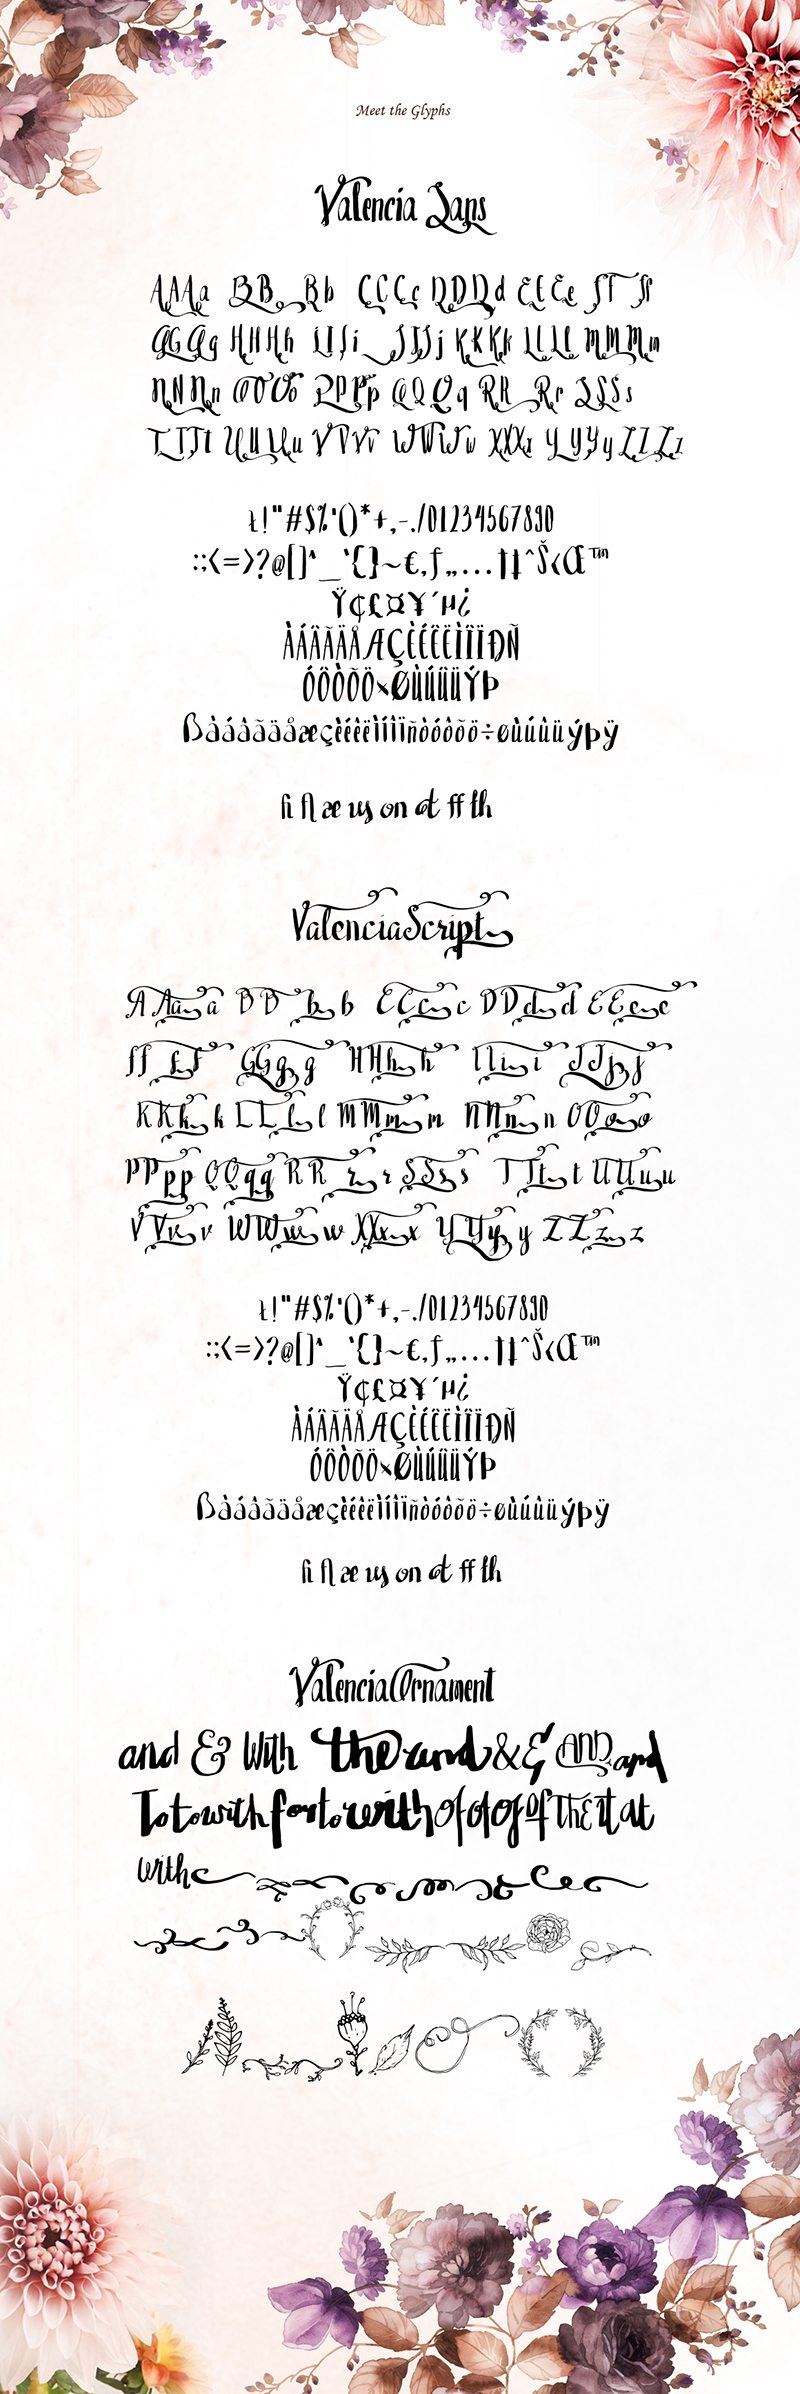 Meet the Glyphs
Valencia Sans
AAAa BB Bb CCCc DDDd EEEe ff ff
GGGg HHHh IIIi JJJj KKKk LLLl MMMm
NNNn OOOo PPPp QQQq RR Rr SSSs
TTTt UUUu VVVv WWWw XXXx YYYy ZZZz
ł!"#$%'()*+,-./0123456789
:;<=>?@[]^_`{}~€,ƒ„…†‡ˆŠ‹Œ™
Ÿ¢£¤¥´µ¿
ÀÁÂÃÄÅÆÇÈÉÊËÌÍÎÏÐÑ
ÓÔÒÕÖ×ØÙÚÛÜÝÞ
ßàáâãäåæçèéêëìíîïñòóôõö÷øùúûüýþÿ
fi fl ae us on at ff th
ValenciaScript
AAaa BB bb CCcc DDdd EEee
ff ff GGgg HHhh IIii JJjj
KKkk LLll MMmm NNnn OOoo
PPpp QQqq RR rr SSss TTtt UUuu
VVvv WWww XXxx YYyy ZZzz
ł!"#$%'()*+,-./0123456789
:;<=>?@[]^_`{}~€,ƒ„…†‡ˆŠ‹Œ™
Ÿ¢£¤¥´µ¿
ÀÁÂÃÄÅÆÇÈÉÊËÌÍÎÏÐÑ
ÓÔÒÕÖ×ØÙÚÛÜÝÞ
ßàáâãäåæçèéêëìíîïñòóôõö÷øùúûüýþÿ
fi fl ae us on at ff th
ValenciaOrnament
and & With the and & & AND and
To to with for to with of of of of The it at
with